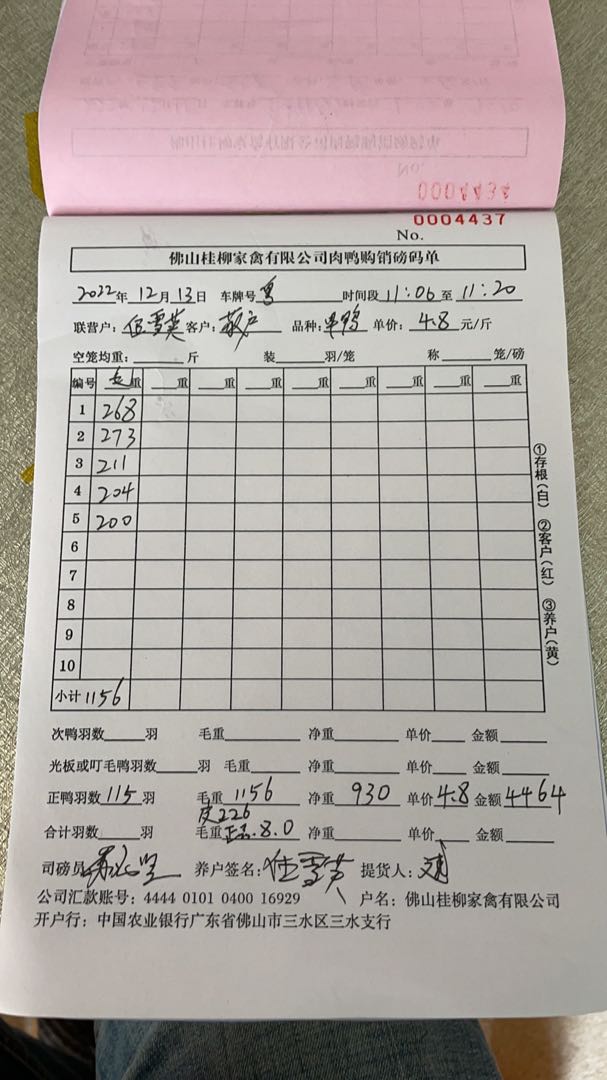 0004434
0004437
No.
佛山桂柳家禽有限公司肉鸭购销磅码单
2022年12月13日 车牌号粤 时间段11:06至11:20
联营户:伍雪英 客户: 品种: 单价:4.8元/斤
空笼均重: 斤 装 羽/笼 称 笼/磅
编号 毛重 重 重 重 重 重 重 重 重
1 268
2 273
3 211
4 204
5 200
6
7
8
9
10
小计 1156
①存根(白) ②客户(红) ③养户(黄)
次鸭羽数 羽 毛重 净重 单价 金额
光板或叮毛鸭羽数 羽 毛重 净重 单价 金额
正鸭羽数115羽 毛重1156 净重930 单价4.8 金额4464
皮226
合计羽数 羽 毛重 8.0 净重 单价 金额
司磅员: 养户签名:伍雪英 提货人:
公司汇款账号:4444 0101 0400 16929 户名:佛山桂柳家禽有限公司
开户行:中国农业银行广东省佛山市三水区三水支行